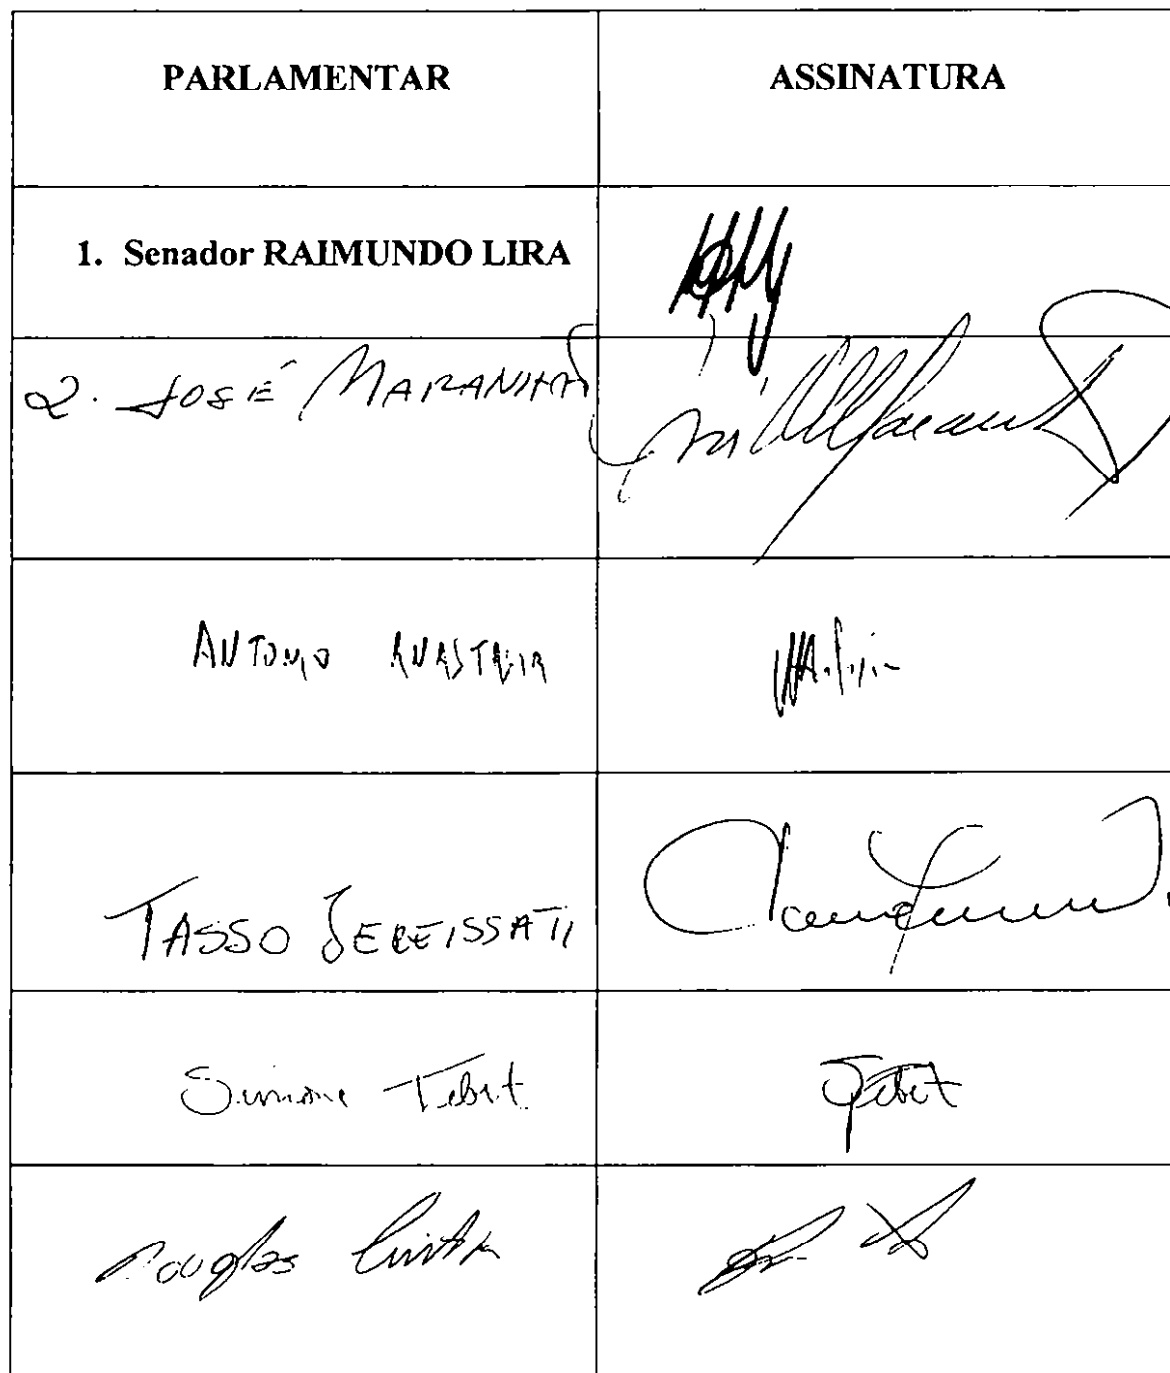 PARLAMENTAR ASSINATURA
1. Senador RAIMUNDO LIRA
2. JOSÉ MARANHÃO
ANTONIO ANASTASIA
TASSO JEREISSATI
Simone Tebet Tebet
Douglas Cintra